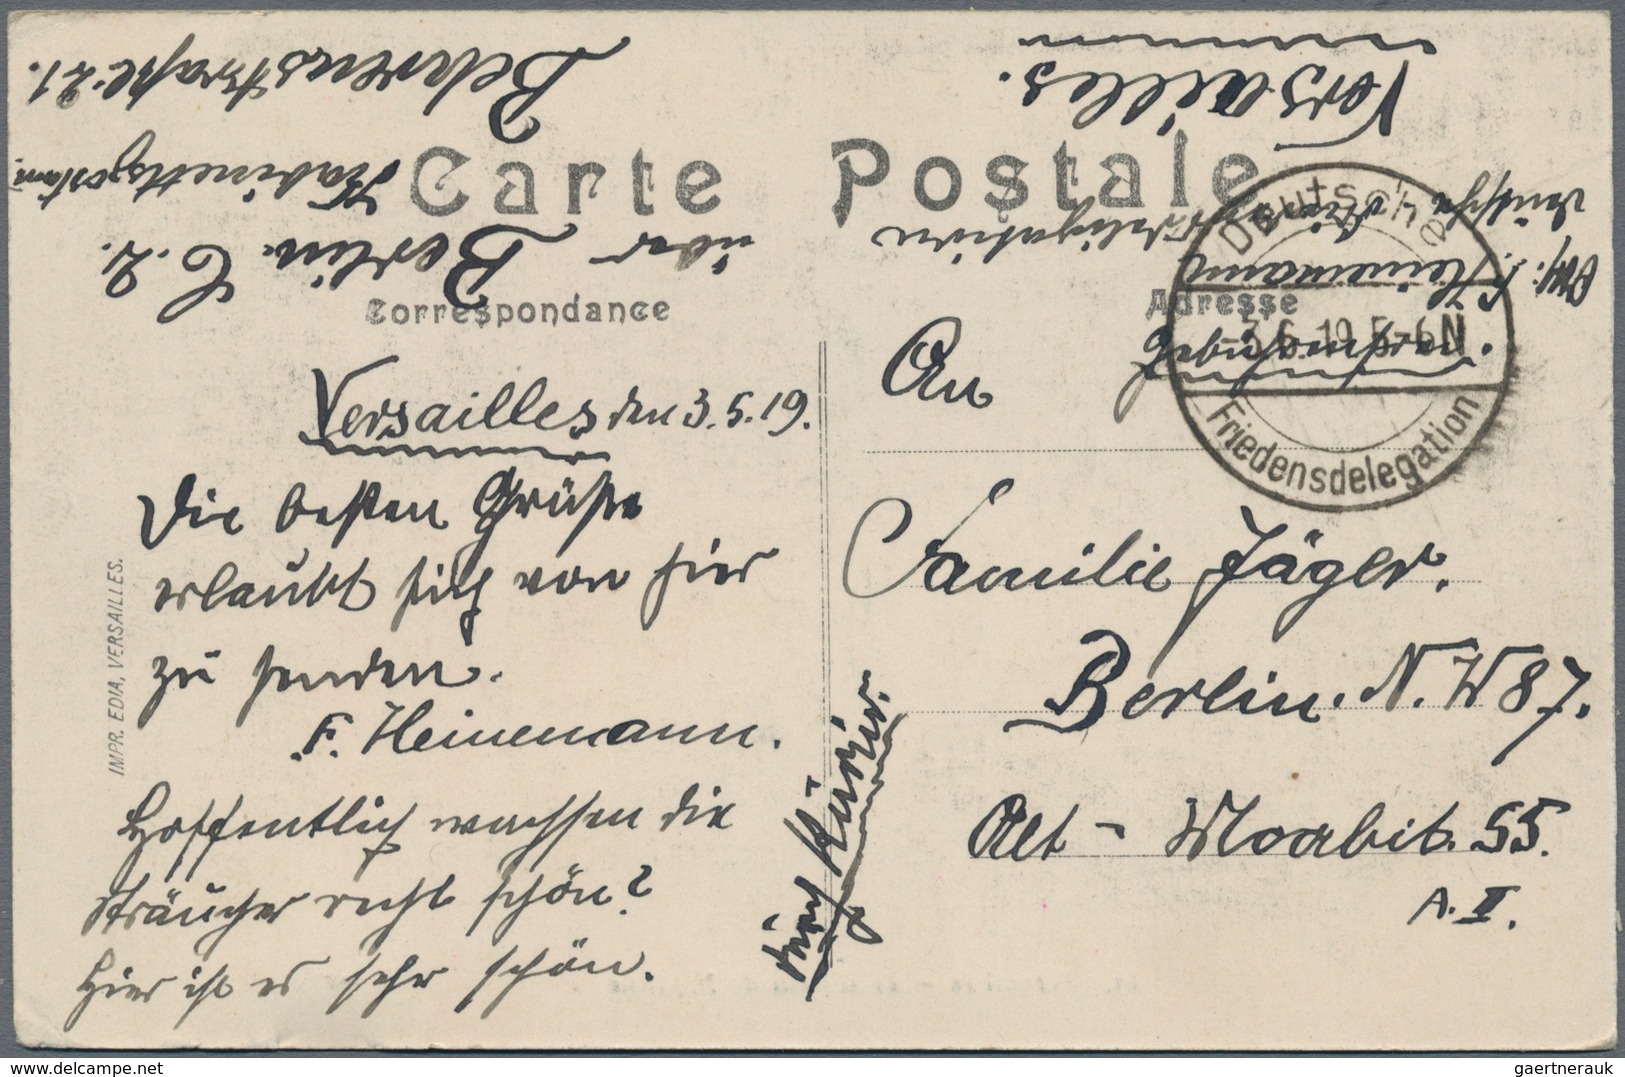 Carte Postale
Correspondance
Adresse
Versailles den 3.5.19.
Die besten Grüße
erlaubt sich von hier
zu senden.
F. Heinemann.
Hoffentlich wachsen die
Sträucher recht schön?
Hier ist es sehr schön.
durch Kurier.
An
Familie Jäger.
Berlin. N.W 87.
Alt-Moabit. 55.
A. II.
Deutsche
-3.6.19.5-6N
Friedensdelegation
Gebührenfrei.
F. Heinemann
deutsche
Friedensdelegation
Versailles.
über Berlin. C. 2.
Kabinettspostamt
Behrenstraße 21.
IMPR. EDIA, VERSAILLES.
gaertnerauk